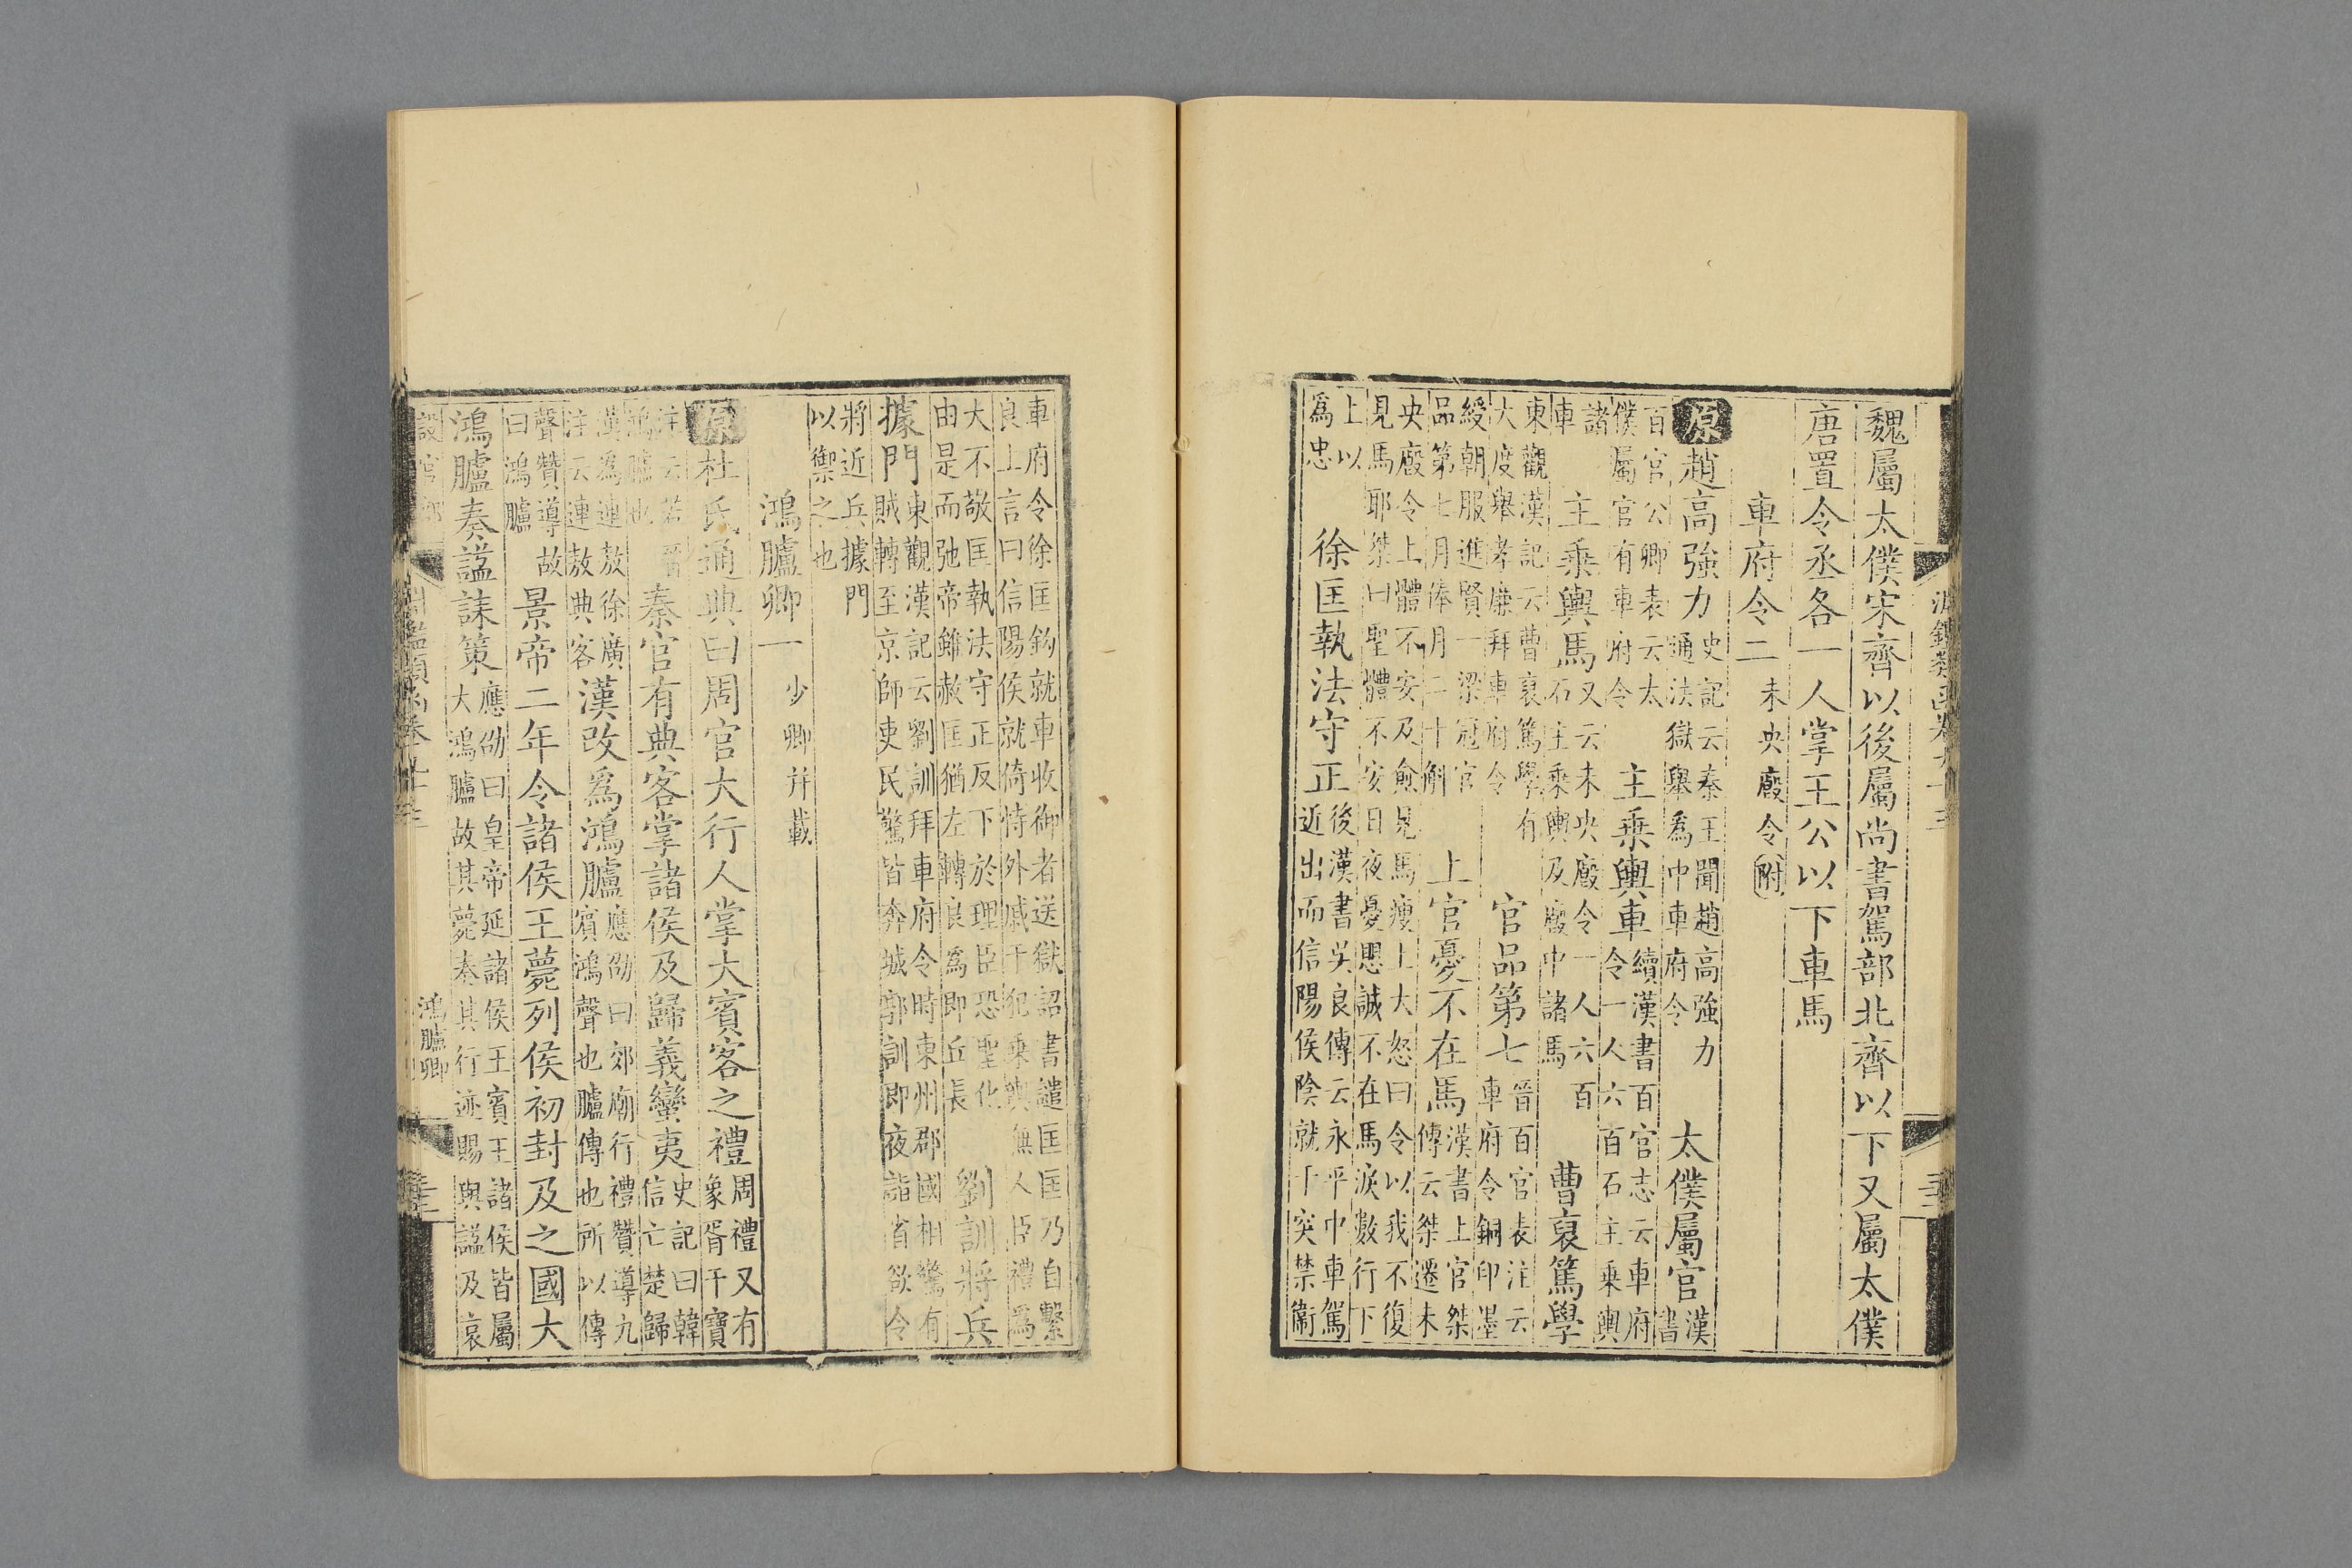 淵鑑類函卷九十三
魏屬太僕宋齊以後屬尚書駕部北齊以下又屬太僕
唐置令丞各一人掌王公以下車馬
車府令二 未央廄令附
原 趙高強力 史記云秦王聞趙高強力通法獄舉爲中車府令 太僕屬官 漢書
百官公卿表云太僕屬官有車府令 主乘輿車 續漢書百官志云車府令一人六百石主乘輿
諸車 主乘輿馬 又云未央廄令一人六百石主乘輿及廄中諸馬 曹裒篤學
東觀漢記云曹裒篤學有大度舉孝廉拜車府令 官品第七 晉百官表注云車府令銅印墨
綬朝服進賢一梁冠官品第七月俸月二十斛 上官憂不在馬 漢書上官桀傳云桀遷未
央廄令上體不安及愈見馬瘦上大怒曰令以我不復見馬耶桀曰聖體不安日夜憂思誠不在馬淚數行下
上以爲忠 徐匡執法守正 後漢書吳良傳云永平中車駕近出而信陽侯陰就于突禁衛
車府令徐匡鈎就車收御者送獄詔書譴匡匡乃自繫良上言曰信陽侯就倚恃外戚干犯乘輿無人臣禮爲
大不敬匡執法守正反下於理臣恐聖化由是而弛帝雖赦匡猶左轉良爲即丘長 劉訓將兵
據門 東觀漢記云劉訓拜車府令時東州郡國相驚有賊轉至京師吏民驚皆奔城郭訓即夜詣省欲令
將近兵據門以禦之也
鴻臚卿一 少卿并載
原 杜氏通典曰周官大行人掌大賓客之禮 周禮又有象胥干寶
注云若晉鴻臚也 秦官有典客掌諸侯及歸義蠻夷 史記曰韓信亡楚歸
漢爲連敖徐廣注云連敖典客 漢改爲鴻臚 應劭曰郊廟行禮贊導九賓鴻聲也臚傳也所以傳
聲贊導故曰鴻臚 景帝二年令諸侯王薨列侯初封及之國大
鴻臚奏諡誄策 應劭曰皇帝延諸侯王賓王諸侯皆屬大鴻臚故其薨奏其行迹賜與諡及哀
設官部 淵鑑類函卷九十三 鴻臚卿